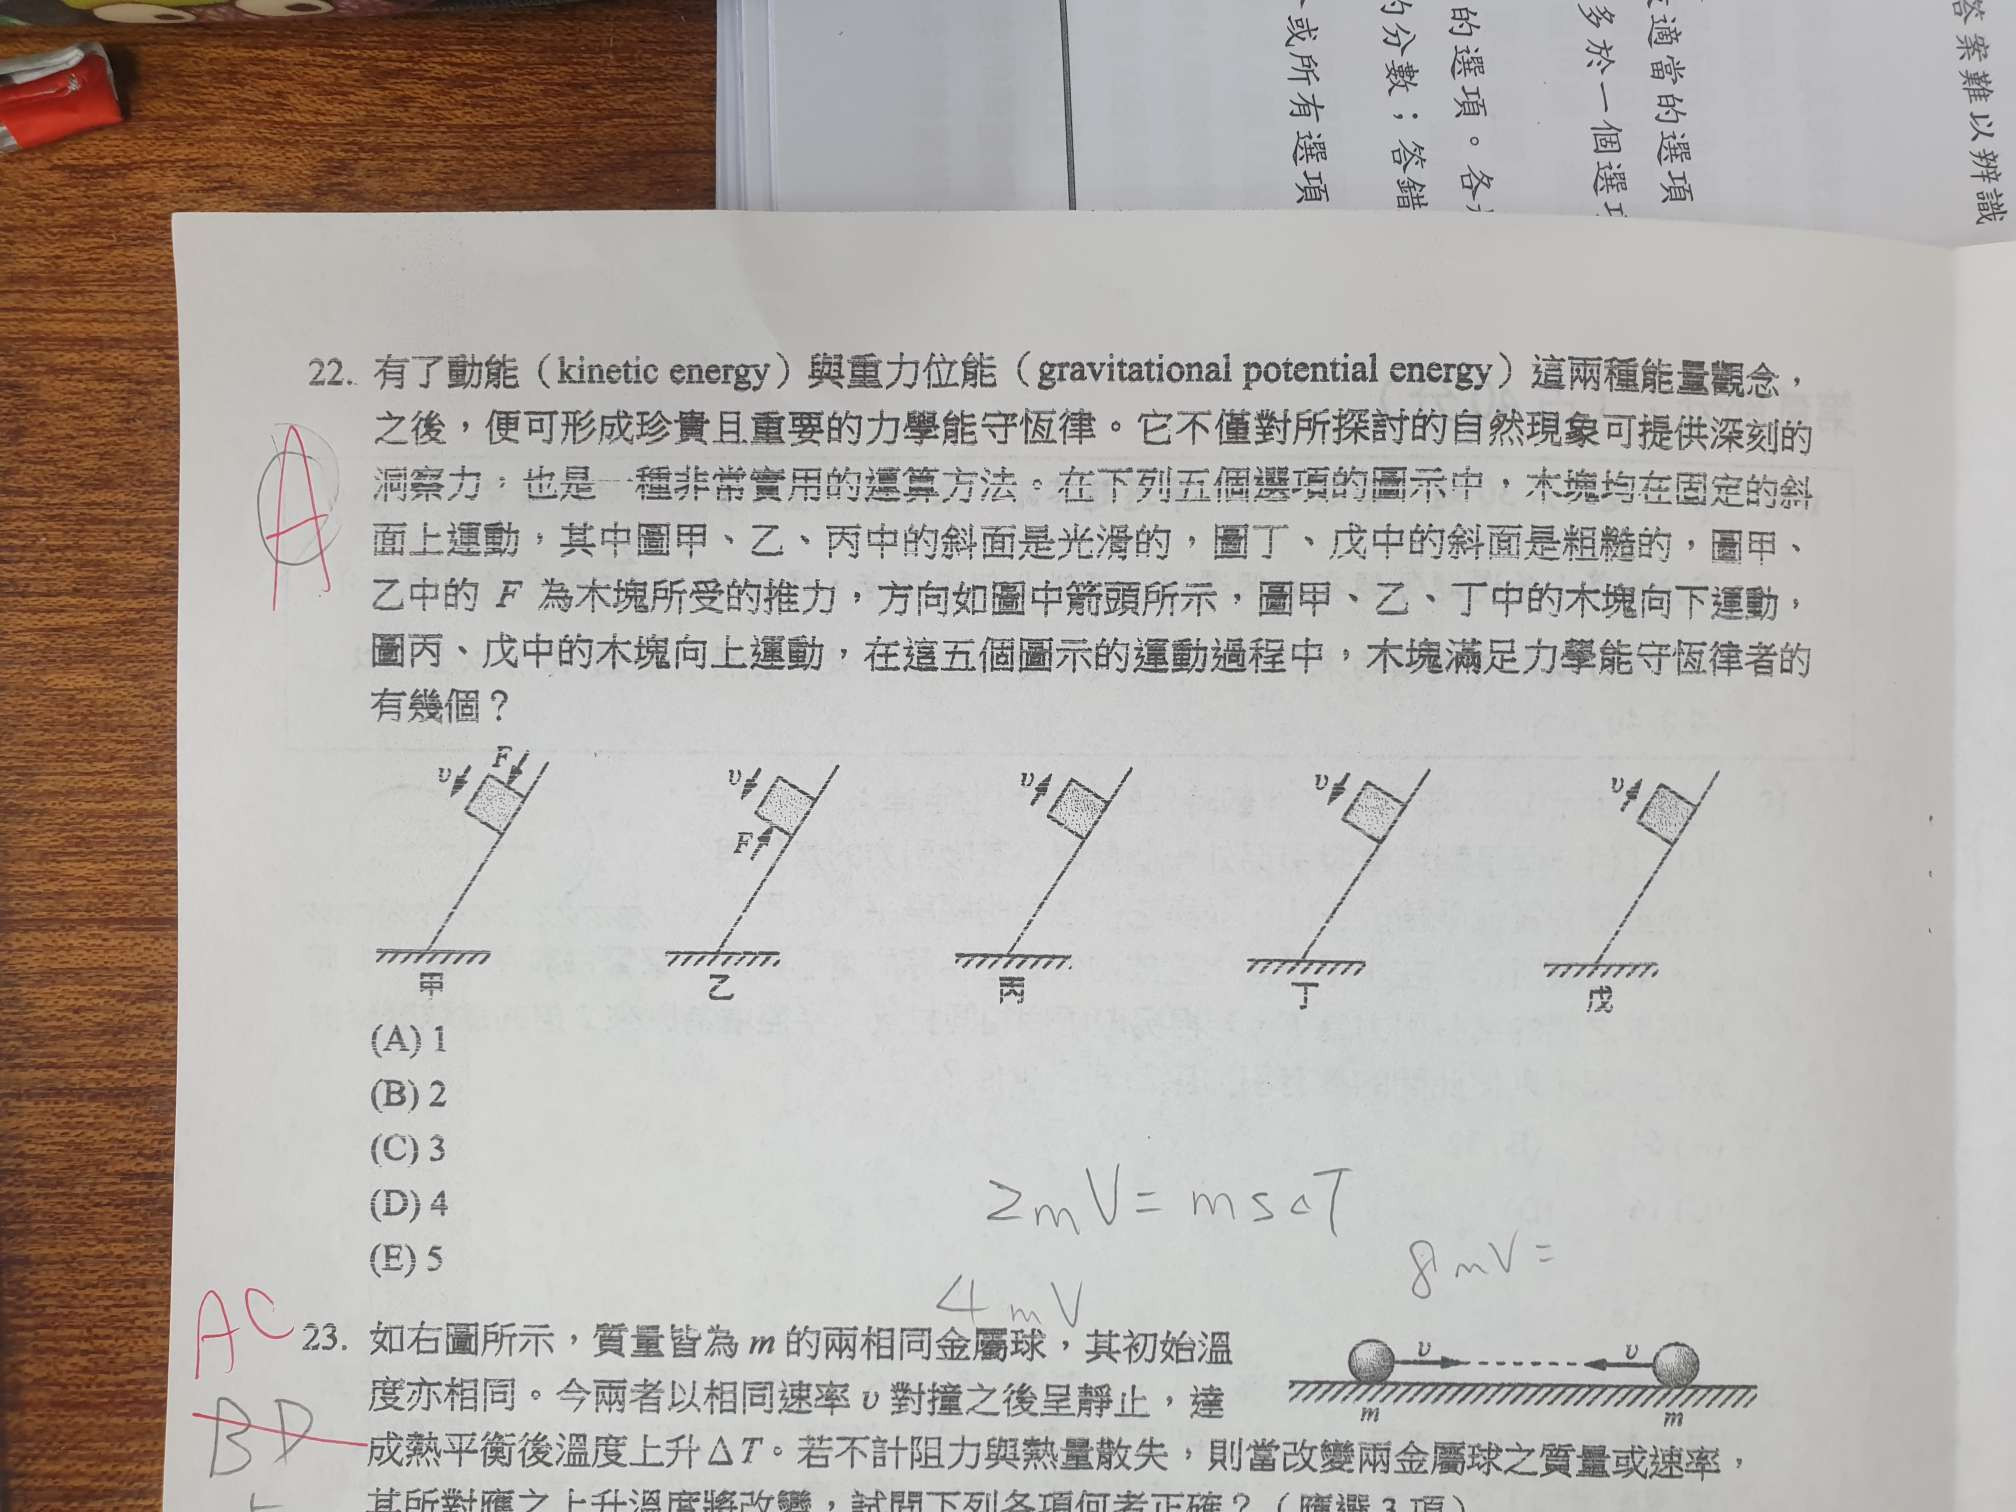 答案難以辨識
適當的選項
多於一個選項
的選項。各
的分數；答錯
、或所有選項
22. 有了動能（kinetic energy）與重力位能（gravitational potential energy）這兩種能量觀念，
之後，便可形成珍貴且重要的力學能守恆律。它不僅對所探討的自然現象可提供深刻的
洞察力，也是一種非常實用的運算方法。在下列五個選項的圖示中，木塊均在固定的斜
面上運動，其中圖甲、乙、丙中的斜面是光滑的，圖丁、戊中的斜面是粗糙的，圖甲、
乙中的 F 為木塊所受的推力，方向如圖中箭頭所示，圖甲、乙、丁中的木塊向下運動，
圖丙、戊中的木塊向上運動，在這五個圖示的運動過程中，木塊滿足力學能守恆律者的
有幾個？
A
υ F
υ F
υ
υ
υ
甲 乙 丙 丁 戊
(A) 1
(B) 2
(C) 3
(D) 4
(E) 5
2mV = msΔT
8mV =
4mV
AC
BD
23. 如右圖所示，質量皆為 m 的兩相同金屬球，其初始溫
度亦相同。今兩者以相同速率 υ 對撞之後呈靜止，達
成熱平衡後溫度上升 ΔT。若不計阻力與熱量散失，則當改變兩金屬球之質量或速率，
其所對應之上升溫度將改變，試問下列各項何者正確？（應選 3 項）
υ υ
m m